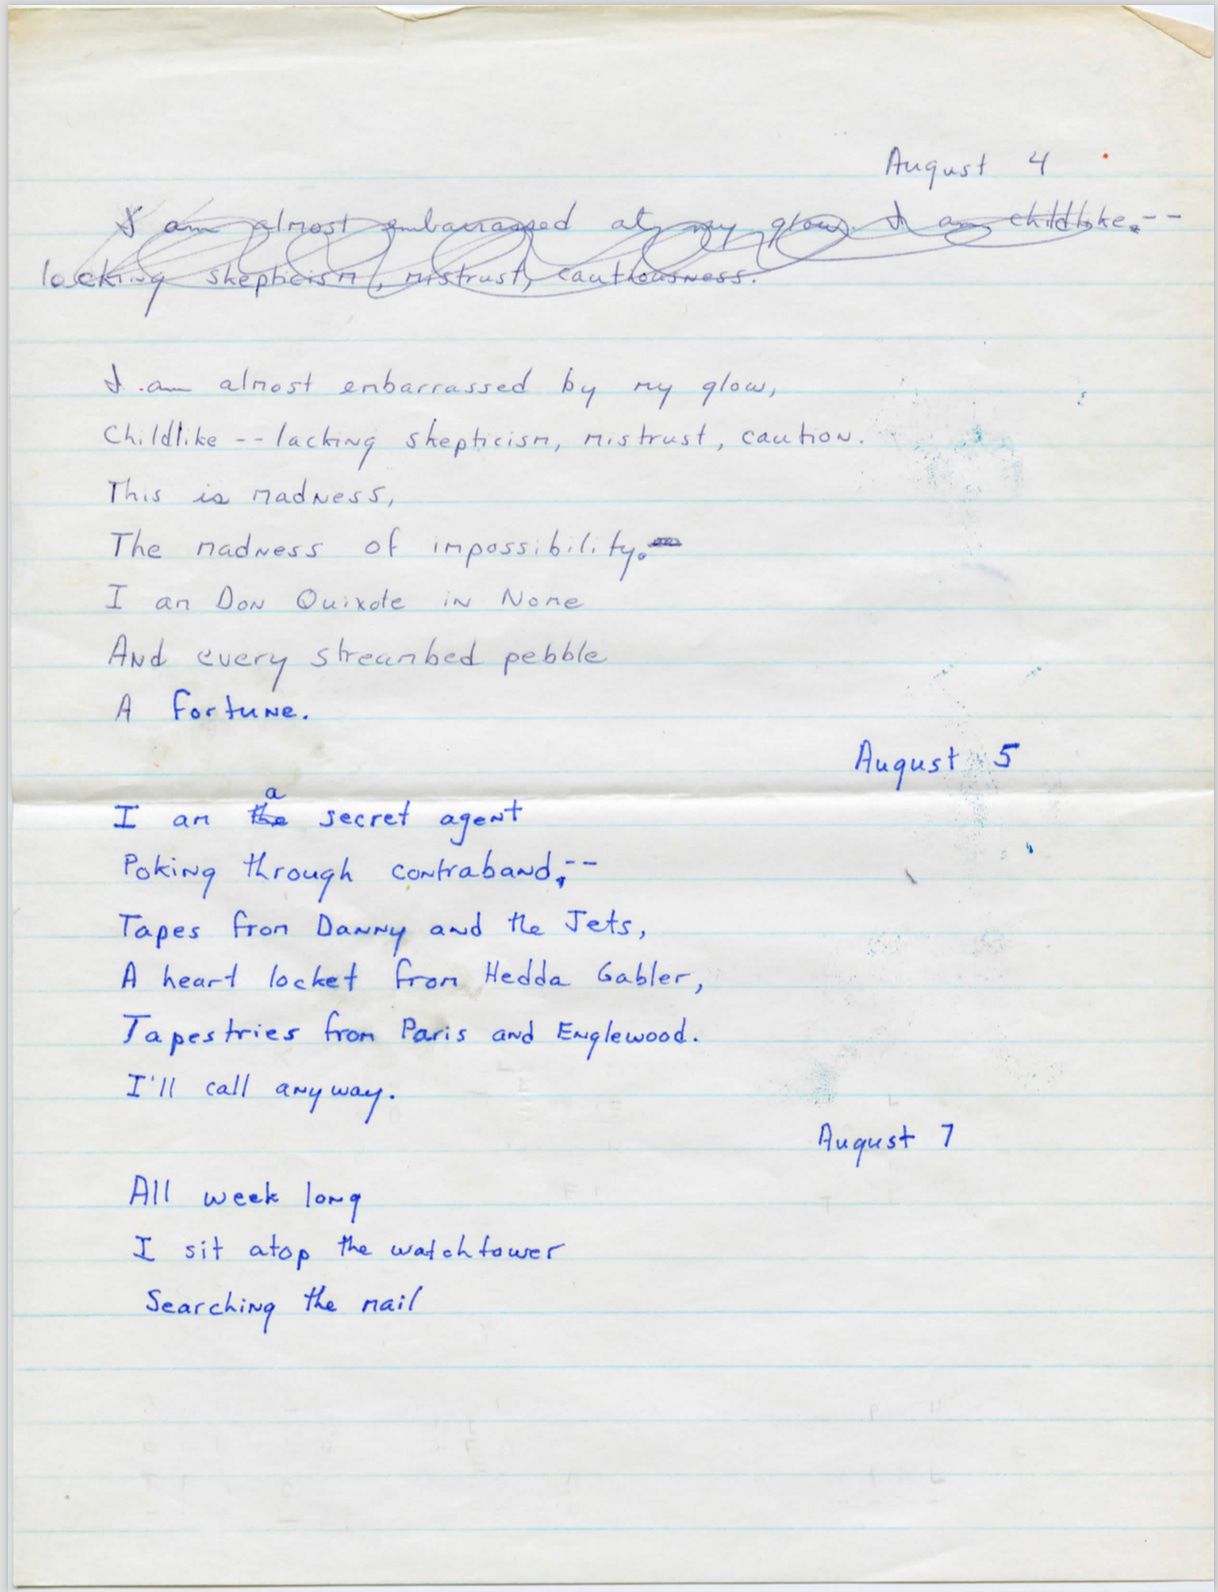 August 4
I am almost embarrassed at my glow. I am childlike.--
lacking skepticism, mistrust, cautiousness.
I am almost embarrassed by my glow,
Childlike -- lacking skepticism, mistrust, caution.
This is madness,
The madness of impossibility.
I am Don Quixote in Nome
And every streambed pebble
A fortune.
August 5
I am the a secret agent
Poking through contraband,--
Tapes from Danny and the Jets,
A heart locket from Hedda Gabler,
Tapestries from Paris and Englewood.
I'll call anyway.
August 7
All week long
I sit atop the watchtower
Searching the mail